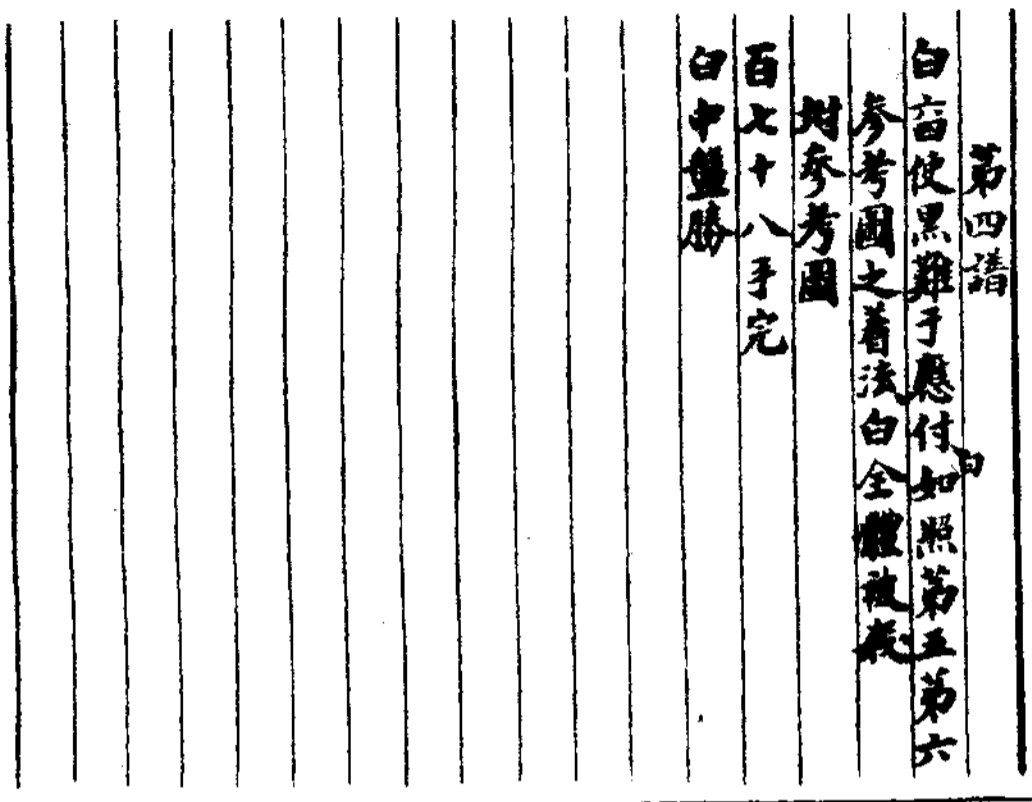 第四譜
白六四使黑難于應付白如照第五第六
參考圖之着法白全體被殺
附參考圖
百七十八手完
白中盤勝